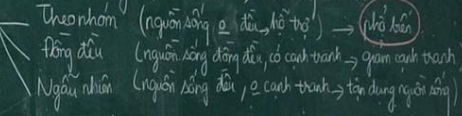 Theo nhóm (nguồn sống o đều, hỗ trợ) → phổ biến
Đồng đều (nguồn sống đồng đều, có cạnh tranh → giảm cạnh tranh
Ngẫu nhiên (nguồn sống đều, o cạnh tranh → tận dụng nguồn sống)